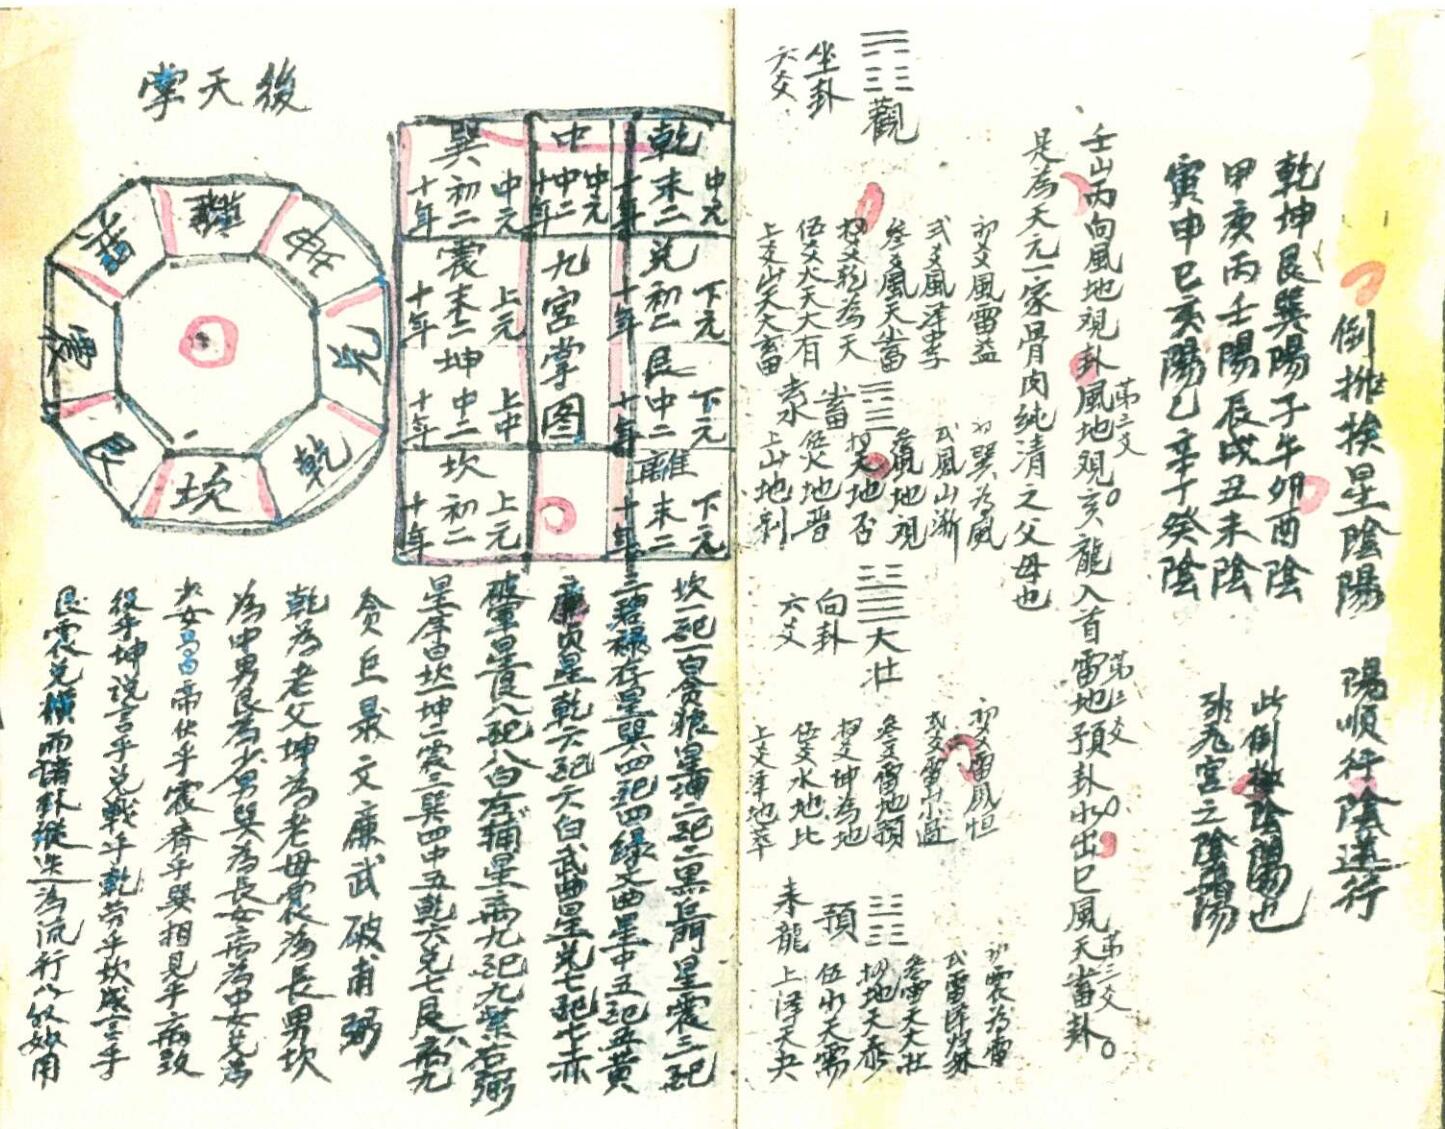 倒排挨星陰陽　陽順行陰逆行
乾坤艮巽陽子午卯酉陰
甲庚丙壬陽辰戌丑未陰
寅申巳亥陽乙辛丁癸陰
此倒排陰陽也
九宮之陰陽
壬山丙向風地观卦風地观亥龍入首雷地預卦水出巳風天畜卦
第三爻
第三爻
第三爻
是為天元一家骨肉純清之父母也
觀
坐卦
六爻
初爻風雷益
弍爻風泽中孚
叁爻風天畜
乾為天
伍爻火天大有
上爻山天大畜
畜
去水
初巽為風
弍風山渐
叁風地观
天地否
伍火地晋
上山地剥
大壮
向卦
六爻
初爻雷風恒
弍爻雷山小過
叁爻雷地預
坤為地
伍爻水地比
上爻泽地萃
預
来龍
初震為雷
弍雷泽归妹
叁雷天大壮
地天泰
伍水天需
上泽天夬
後天掌
離
坤
兑
乾
坎
艮
震
巽
乾末二十年
中元
中中二十年
中元
巽初二十年
中元
兑初二十年
下元
九宮掌图
震末二十年
上元
艮中二十年
下元
坤中二十年
上中
離末二十年
下元
坎初二十年
上元
坎一記一白贪狼星坤二記二黑巨門星震三記
三碧禄存星巽四記四绿文曲星中五記五黄
廉贞星乾六記六白武曲星兑七記七赤
破軍星艮八記八白左辅星离九記九紫右弼
星序曰坎一坤二震三巽四中五乾六兑七艮八离九
贪巨录文廉武破甫弼
乾為老父坤為老母震為長男坎
為中男艮為少男巽為長女离為中女兑為
少女易曰帝伏乎震齐乎巽相見乎离致
役乎坤説言乎兑戰乎乾劳乎坎成言乎
艮震兑横而诸卦縱迭為流行以妙用